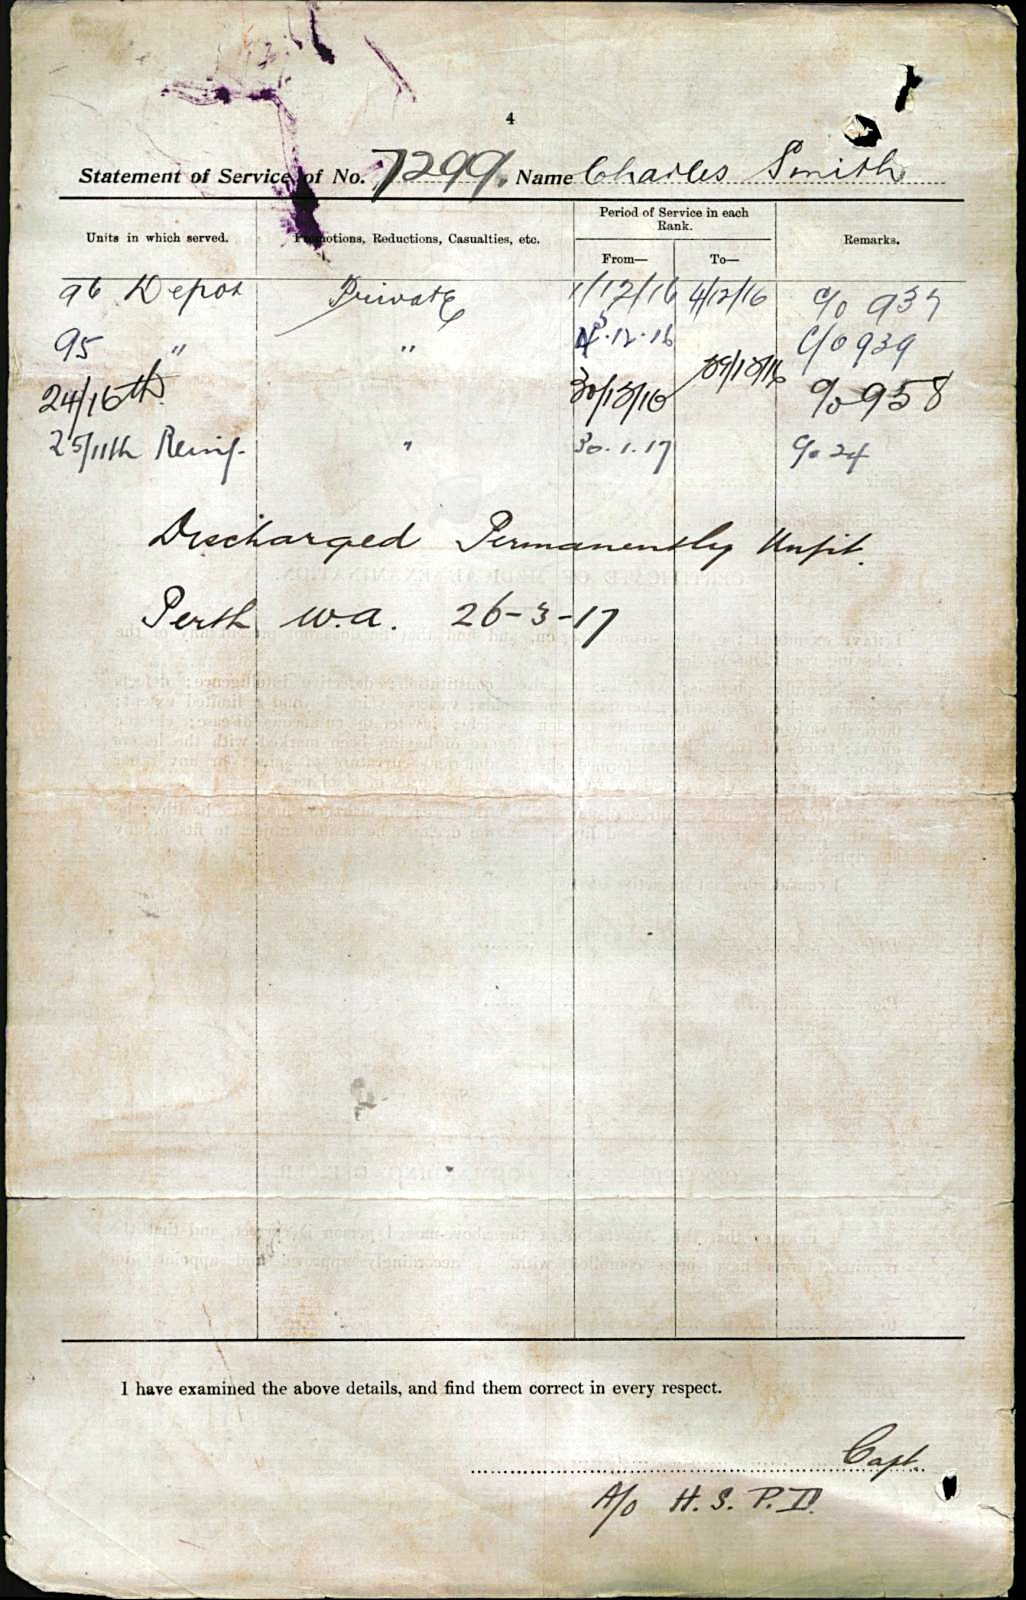 4
Statement of Service of No. 7299. Name Charles Smith
Units in which served.
Promotions, Reductions, Casualties, etc.
Period of Service in each Rank.
From—
To—
Remarks.
96 Depot Private 1/12/16 4/12/16 C/o 937
95 " " 5.12.16 C/o 939
24/16th 30/12/16 29/12/16 C/o 958
25/11th Reinf. " 30.1.17 C/o 24
Discharged Permanently Unfit.
Perth W.A. 26-3-17
I have examined the above details, and find them correct in every respect.
Capt.
A/o H.S.P.D.